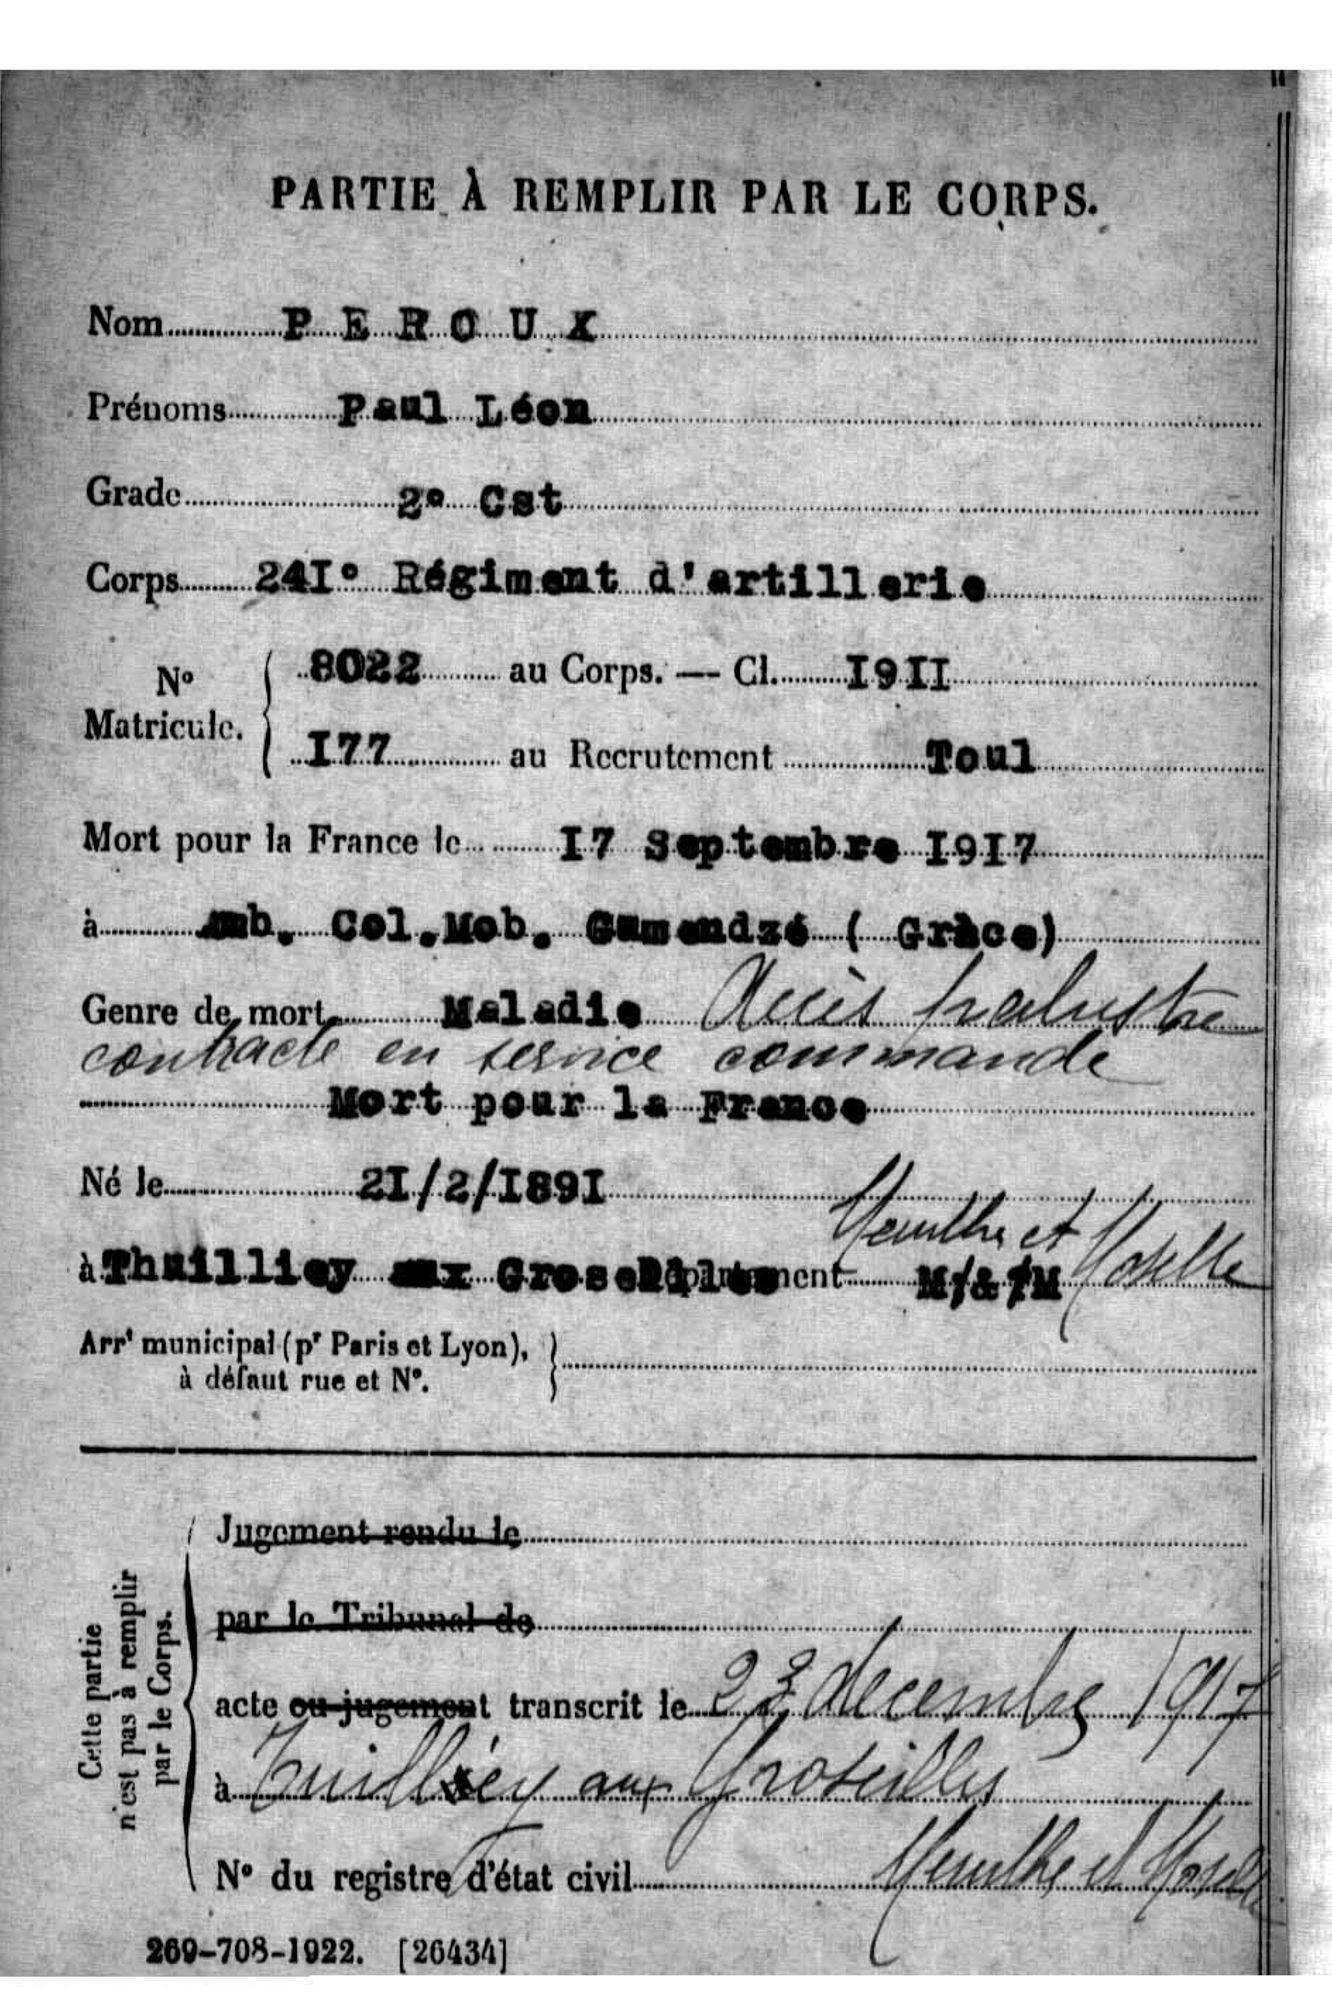 PARTIE À REMPLIR PAR LE CORPS.
Nom PEROUX
Prénoms Paul Léon
Grade 2° Cst
Corps 241° Régiment d'artillerie
N° Matricule. 8022 au Corps. — Cl. 1911
177 au Recrutement Toul
Mort pour la France le 17 Septembre 1917
à Amb. Col.Mob. Gumendzé ( Grèce)
Genre de mort Maladie Accès palustre
contracté en service commandé
Mort pour la France
Né le 21/2/1891
Meurthe et Moselle
à Thuilliey aux Groseilles Département M/&/M
Arrt municipal (pr Paris et Lyon),
à défaut rue et N°.
Cette partie
n'est pas à remplir
par le Corps.
Jugement rendu le
par le Tribunal de
acte ou jugement transcrit le 23 décembre 1917
à Thuilley aux Groseilles
N° du registre d'état civil Meurthe et Moselle
269-708-1922. [26434]